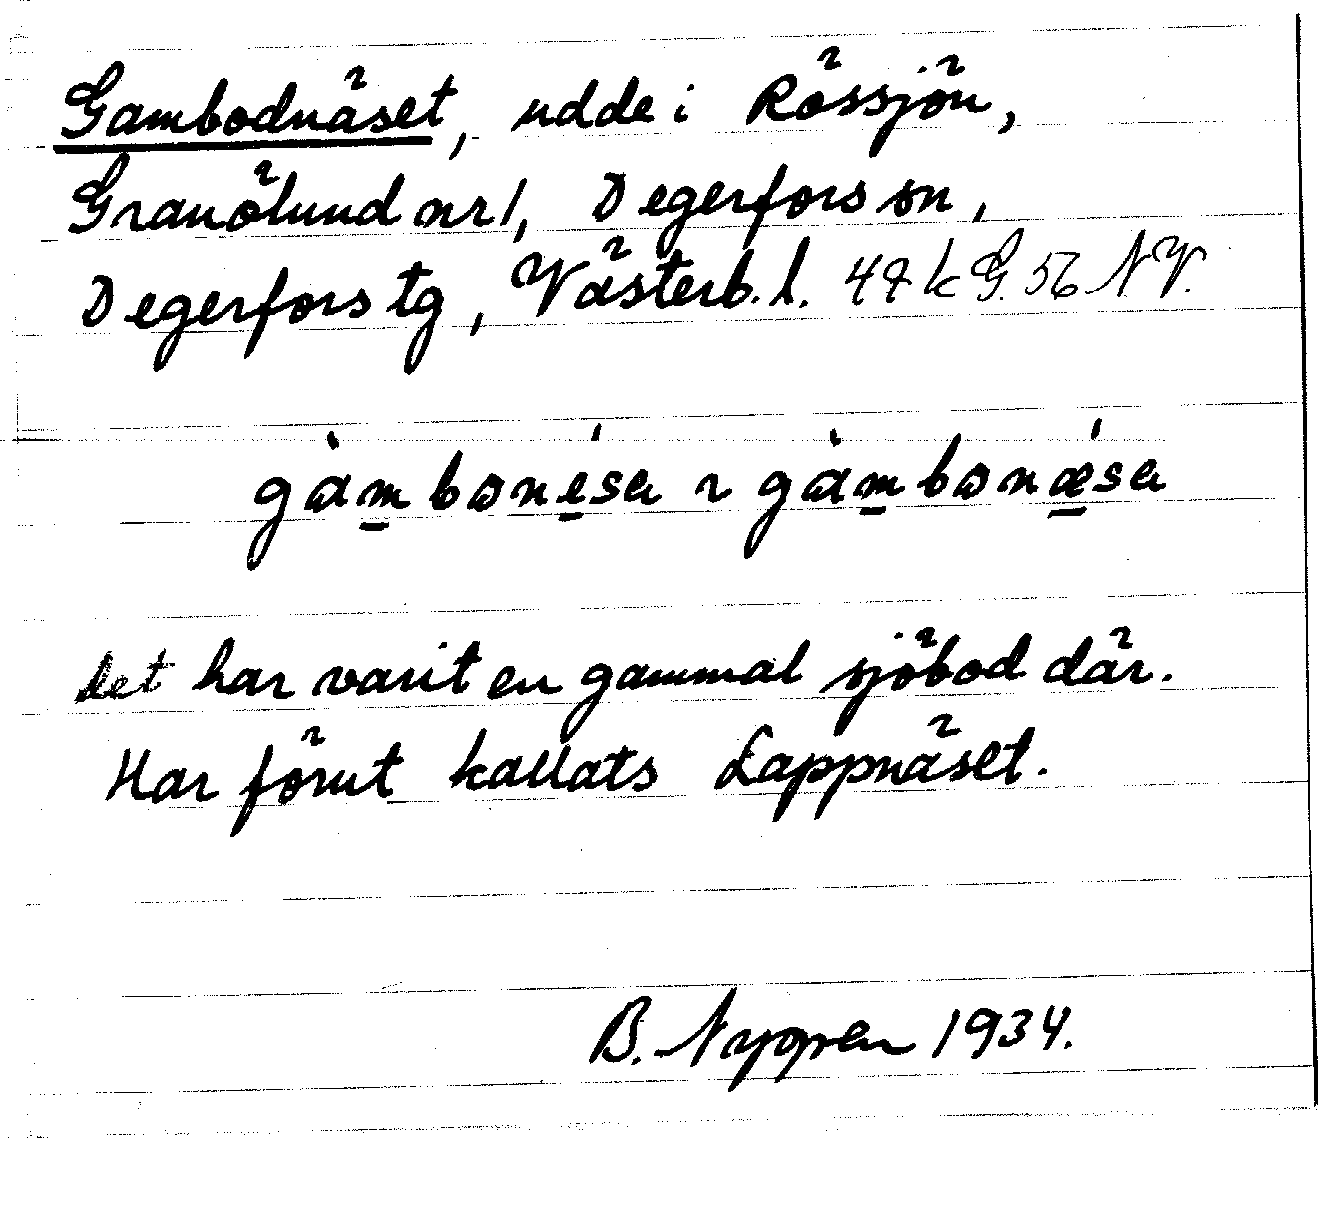 Gambodnäset, udde i Rössjön,
Granölund nr 1, Degerfors sn,
Degerfors tg, Västerb. l. 47 k G. 56 NV.
gàm̲bωné̲sa ~ gàm̲bωnǽ̲sa
Det har varit en gammal sjöbod där.
Har förut kallats Lappnäset.
B. Nygren 1934.